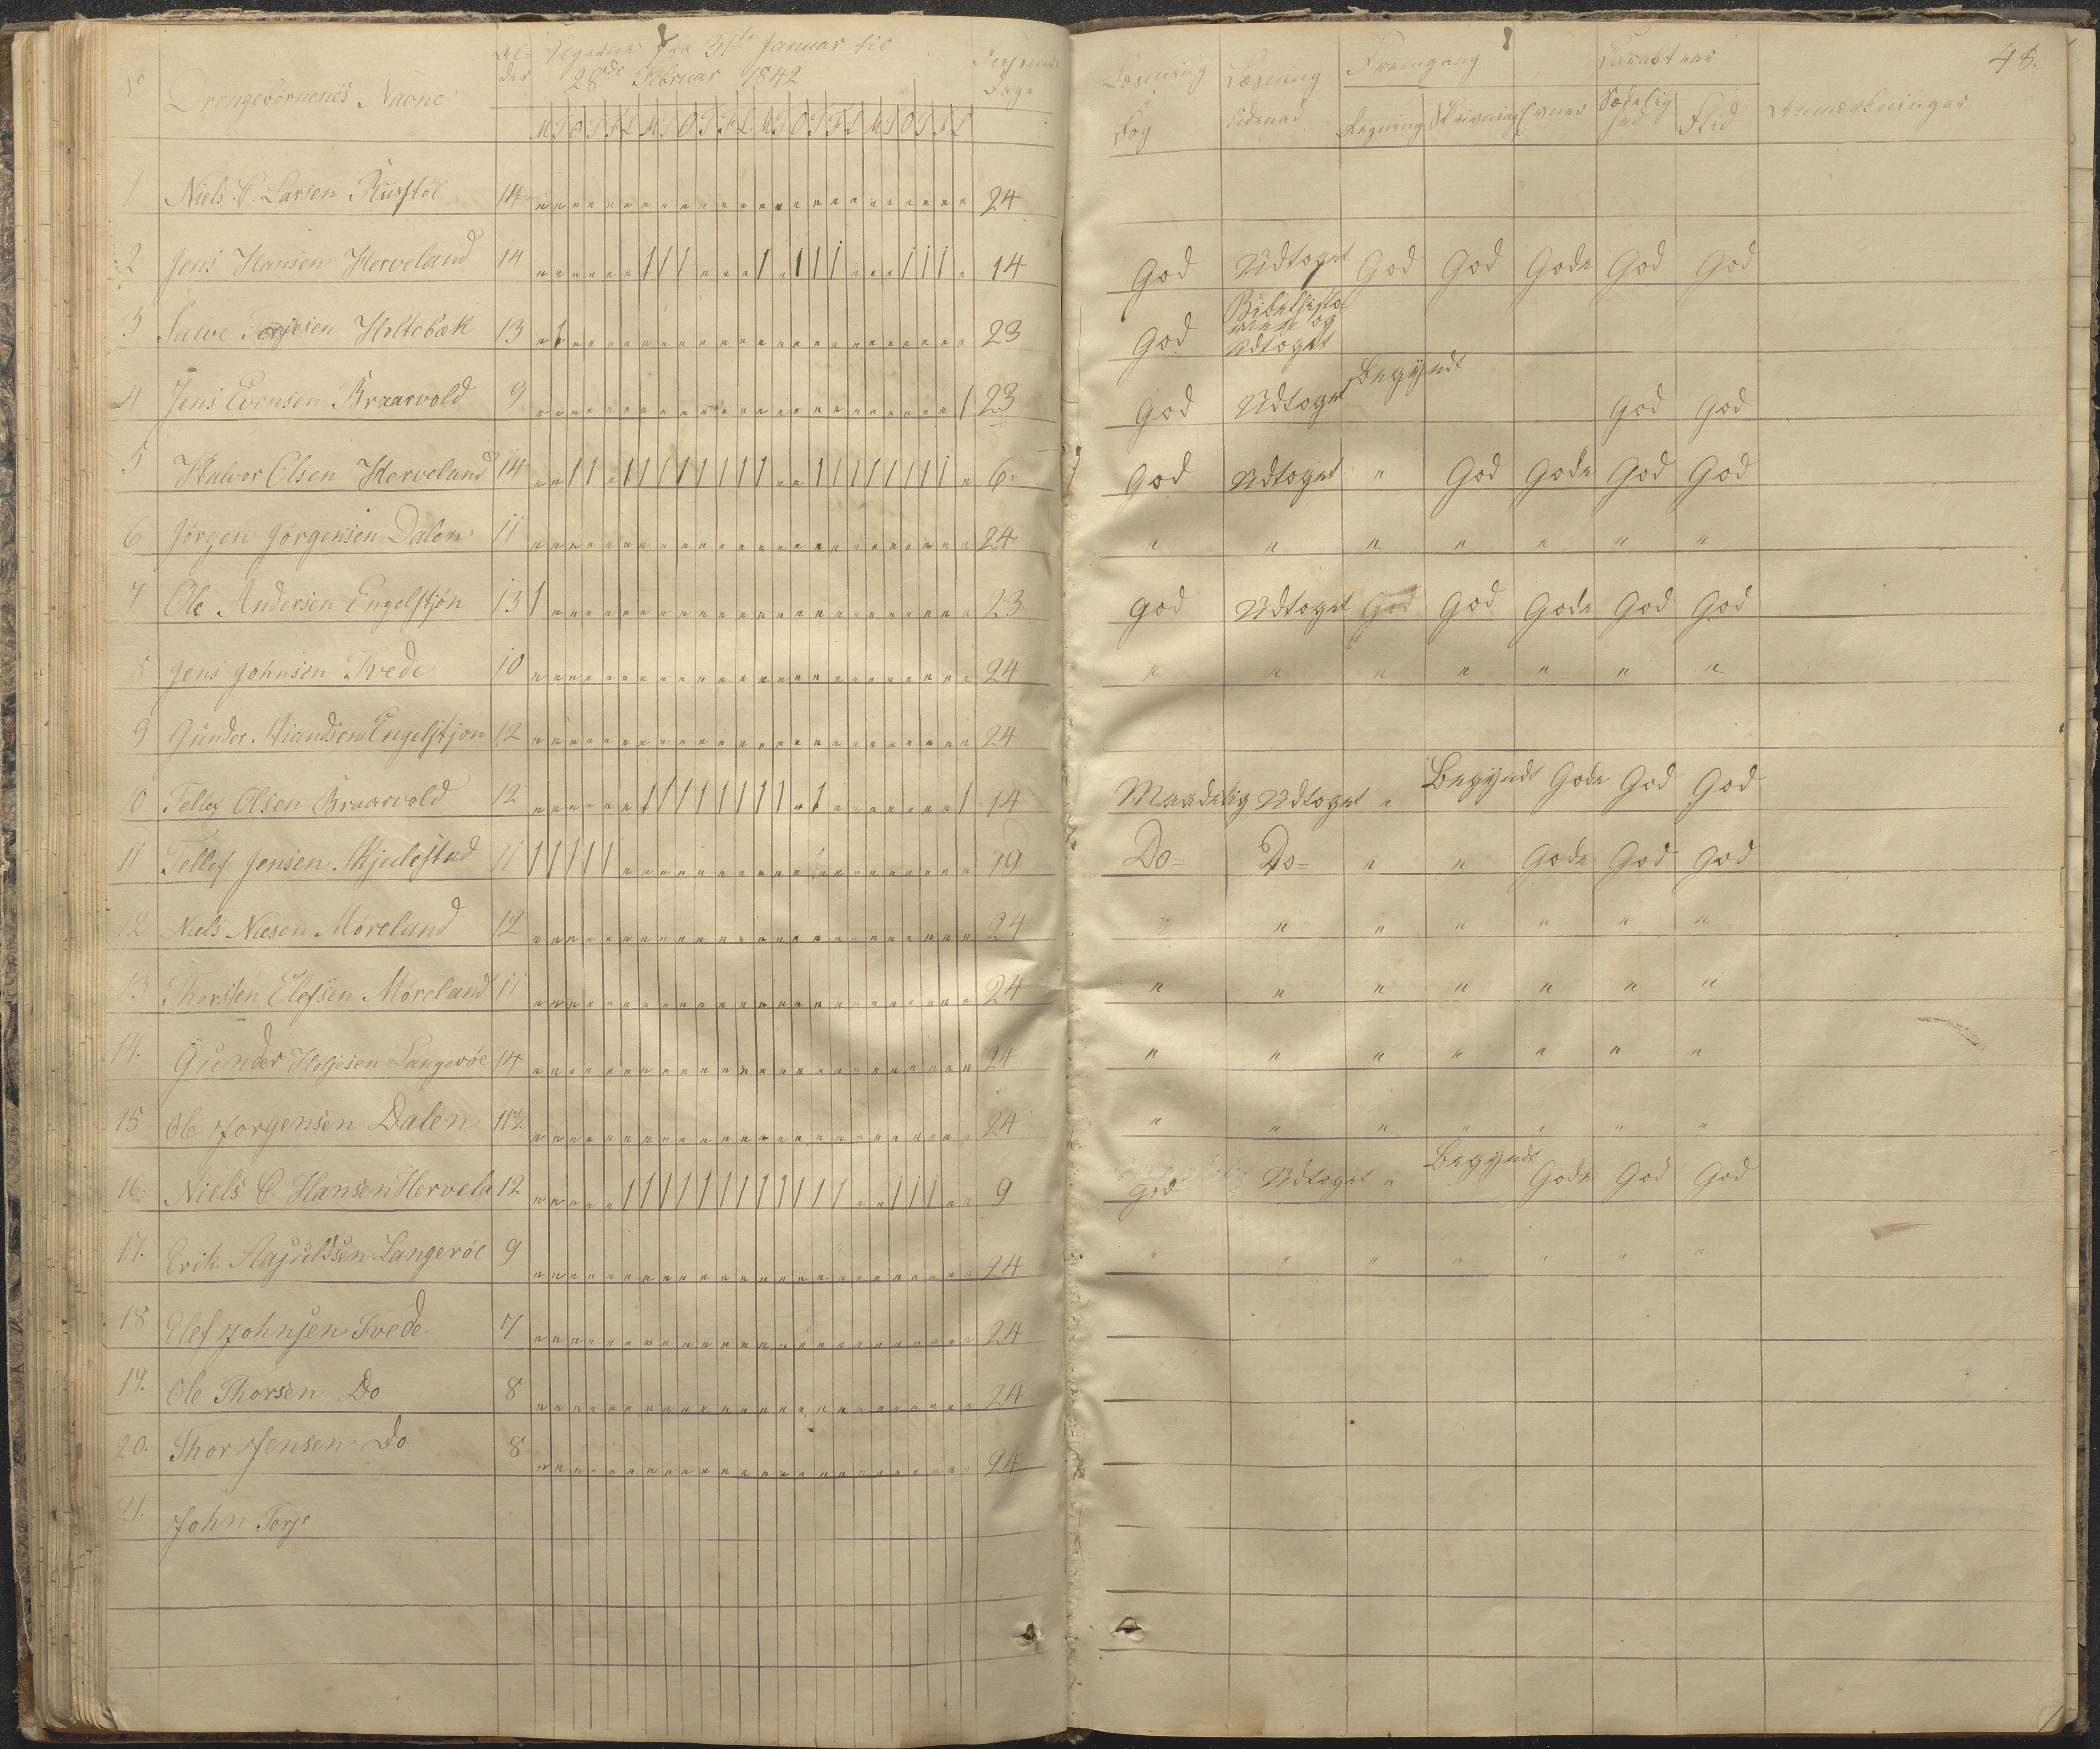 48.
Drengebørnenes Navne Al- fra 31te Januar til
der 28de Februar 1842 Dage
M T O T F L M T O T F L M T O T F L M T O T F L
Læsning Læsning Fremgang
Bog Udenad Regning Skrivning Evner Sædelig
hed Flid Anmærkninger
1 Niels C. Larsen 14 24
2 Jens Hansen Herveland 14 14 God Udtoget God God Gode God God
3 Terjesen Holtebæk 13 23 God Bibelhisto-
og
Udtoget
4 Jens Evensen Braarvold 9 23 God Udtoget Begyndt God God
5 Halvor Olsen Herveland 14 6 God Udtoget " God Gode God God
6 Jörgen Jörgensen Dalen 11 24 " " " " " " "
7 Ole Andersen Engelstjön 13 23 God Udtoget God God Gode God God
8 Jens Johnsen Tvede 10 24 " " " " " " "
9 Günder Engelstjön 12 24
0 Tellef Olsen Braarvold 12 14 Maadelig Udtoget " Begyndt Gode God God
11 Tellef Jensen Skjulestad 11 19 Do= Do= " " Gode God God
12 Niels Möreland 12 24 " " " " " " "
13 Thorsten Elefsen Möreland 11 24 " " " " " " "
14. Günder Holjesen Langeröe 14 24 " " " " " " "
15 Ole Jorgensen Dalen 11½ 24 " " " " " " "
16. Niels C Hansen Hervela 12 9 God Udtoget " Begyndt Gode God God
17. Erik Langeröe 9 24 " " " " " " "
18 Elef Johnsen Tvede 7 24
19. Ole Thorsen Do 8 24
20. Thor Jensen Do 8 24
21. John Terje